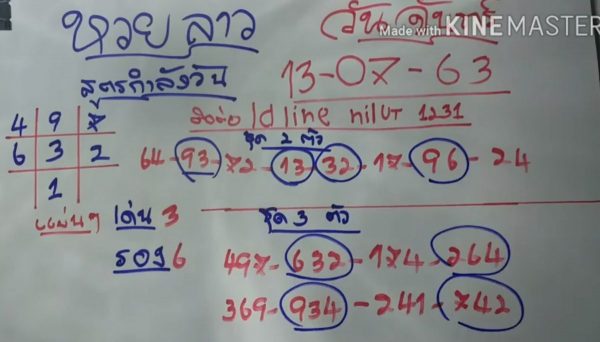 หวย ลาว
วันจันทร์
Made with KINEMASTER
สูตรกำลังวัน
13-07-63
ติดต่อ Id line nilUT 1231
4 9 7
6 3 2
1
ชุด 2 ตัว
64-93-72-13-32-17-96-24
แม่นๆ
เด่น 3
รอง 6
ชุด 3 ตัว
497-632-174-264
369-934-241-742